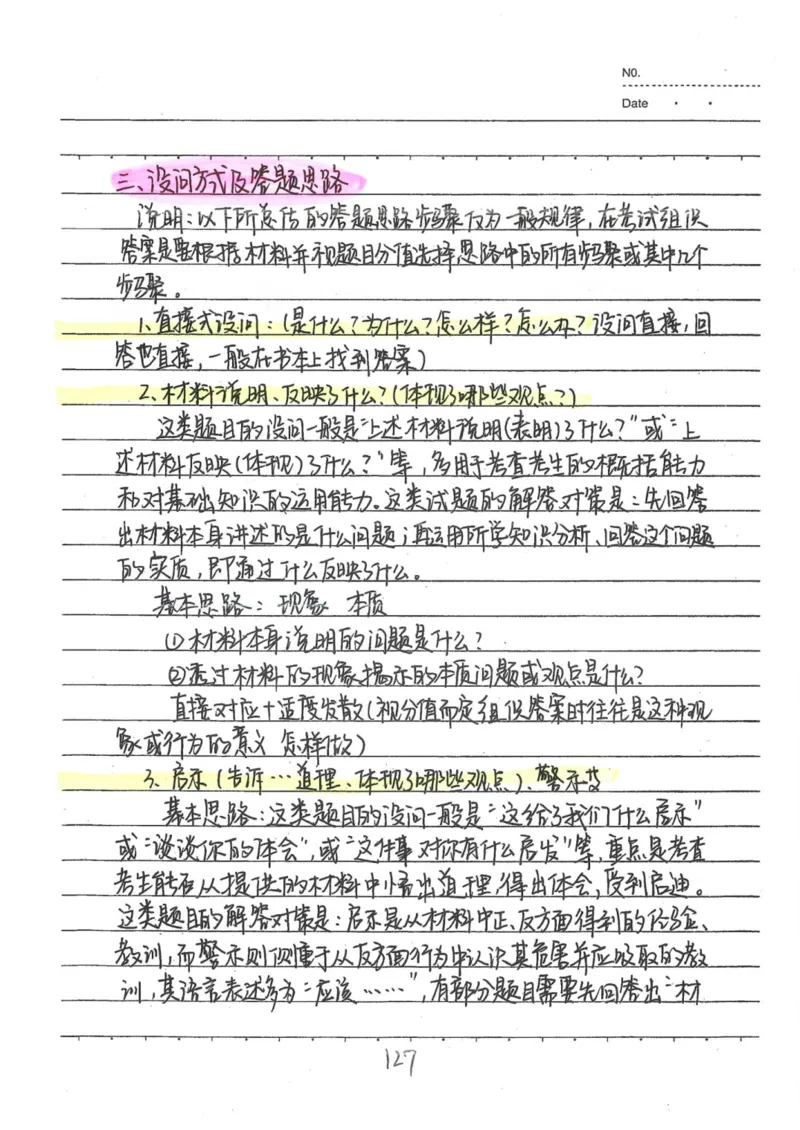 NO.
Date
三、设问方式及答题思路
说明：以下所总结的答题思路步骤仅为一般规律，在考试组织
答案是要根据材料并视题目分值选择思路中的所有步骤或其中几个
步骤。
1、直接式设问：（是什么？为什么？怎么样？怎么办？设问直接，回
答也直接，一般在书本上找到答案）
2、材料说明、反映了什么？（体现了哪些观点？）
这类题目的设问一般是“上述材料说明（表明）了什么？”或“上
述材料反映（体现）了什么？”等，多用于考查考生的概括能力
和对基础知识的运用能力。这类试题的解答对策是：先回答
出材料本身讲述的是什么问题；再运用所学知识分析、回答这个问题
的实质，即通过什么反映了什么。
基本思路：现象 本质
①材料本身说明的问题是什么？
②透过材料的现象揭示的本质问题或观点是什么？
直接对应+适度发散（视分值而定组织答案时往往是这种现
象或行为的意义 怎样做）
3、启示（告诉…道理、体现了哪些观点）、警示类
基本思路：这类题目的设问一般是“这给了我们什么启示”
或“谈谈你的体会”，或“这件事对你有什么启发”等，重点是考查
考生能否从提供的材料中悟出道理，得出体会，受到启迪。
这类题目的解答对策是：启示是从材料中正、反方面得到的经验、
教训，而警示则侧重于从反方面行为中认识其危害并应吸取的教
训，其语言表述多为“应该……”，有部分题目需要先回答出“材
127